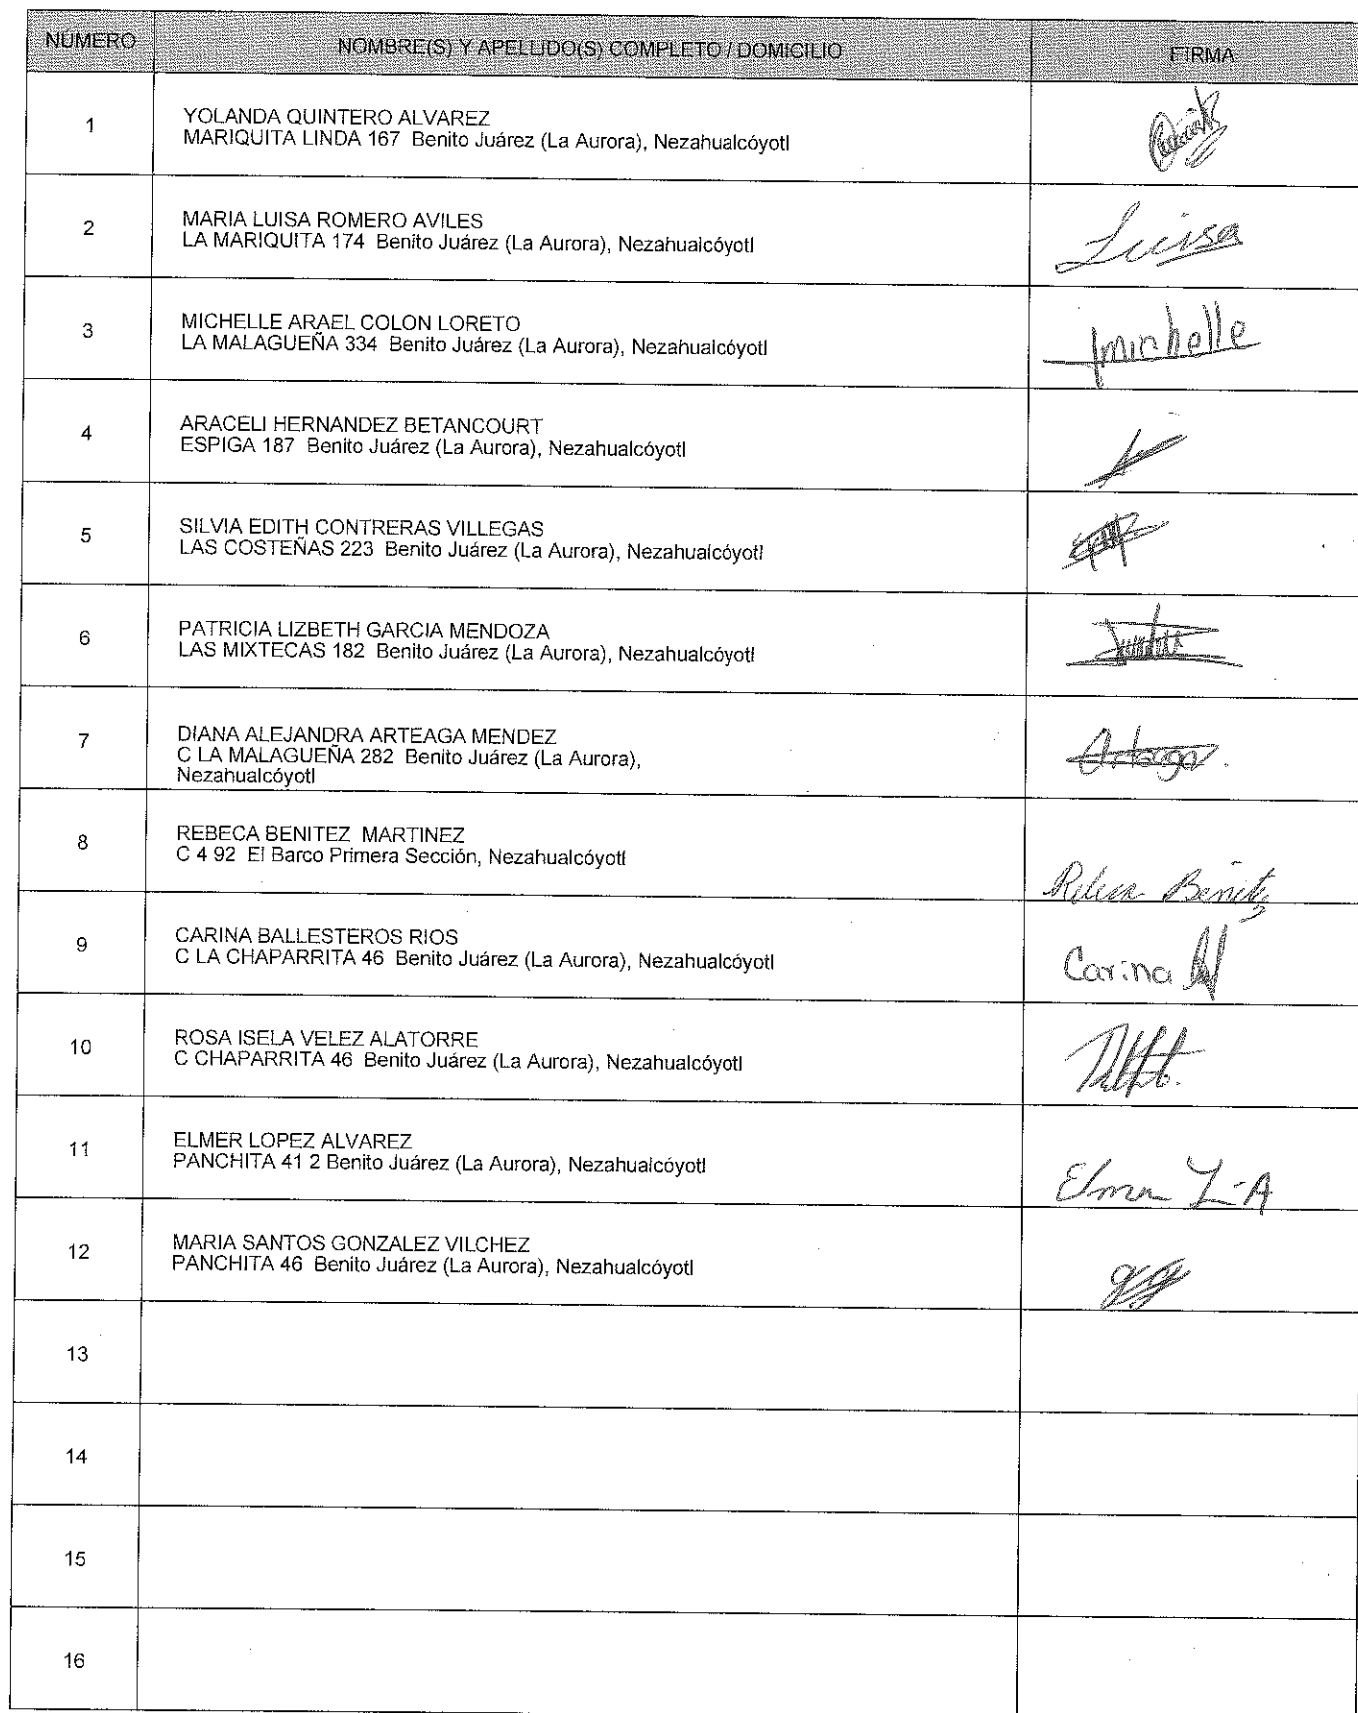 NÚMERO NOMBRE(S) Y APELLIDO(S) COMPLETO / DOMICILIO FIRMA
1 YOLANDA QUINTERO ALVAREZ
MARIQUITA LINDA 167 Benito Juárez (La Aurora), Nezahualcóyotl
2 MARIA LUISA ROMERO AVILES
LA MARIQUITA 174 Benito Juárez (La Aurora), Nezahualcóyotl
Luisa
3 MICHELLE ARAEL COLON LORETO
LA MALAGUEÑA 334 Benito Juárez (La Aurora), Nezahualcóyotl
michelle
4 ARACELI HERNANDEZ BETANCOURT
ESPIGA 187 Benito Juárez (La Aurora), Nezahualcóyotl
5 SILVIA EDITH CONTRERAS VILLEGAS
LAS COSTEÑAS 223 Benito Juárez (La Aurora), Nezahualcóyotl
6 PATRICIA LIZBETH GARCIA MENDOZA
LAS MIXTECAS 182 Benito Juárez (La Aurora), Nezahualcóyotl
7 DIANA ALEJANDRA ARTEAGA MENDEZ
C LA MALAGUEÑA 282 Benito Juárez (La Aurora),
Nezahualcóyotl
Arteaga
8 REBECA BENITEZ MARTINEZ
C 4 92 El Barco Primera Sección, Nezahualcóyotl
Benitez
9 CARINA BALLESTEROS RIOS
C LA CHAPARRITA 46 Benito Juárez (La Aurora), Nezahualcóyotl
Carina
10 ROSA ISELA VELEZ ALATORRE
C CHAPARRITA 46 Benito Juárez (La Aurora), Nezahualcóyotl
11 ELMER LOPEZ ALVAREZ
PANCHITA 41 2 Benito Juárez (La Aurora), Nezahualcóyotl
Elmer L-A
12 MARIA SANTOS GONZALEZ VILCHEZ
PANCHITA 46 Benito Juárez (La Aurora), Nezahualcóyotl
13
14
15
16